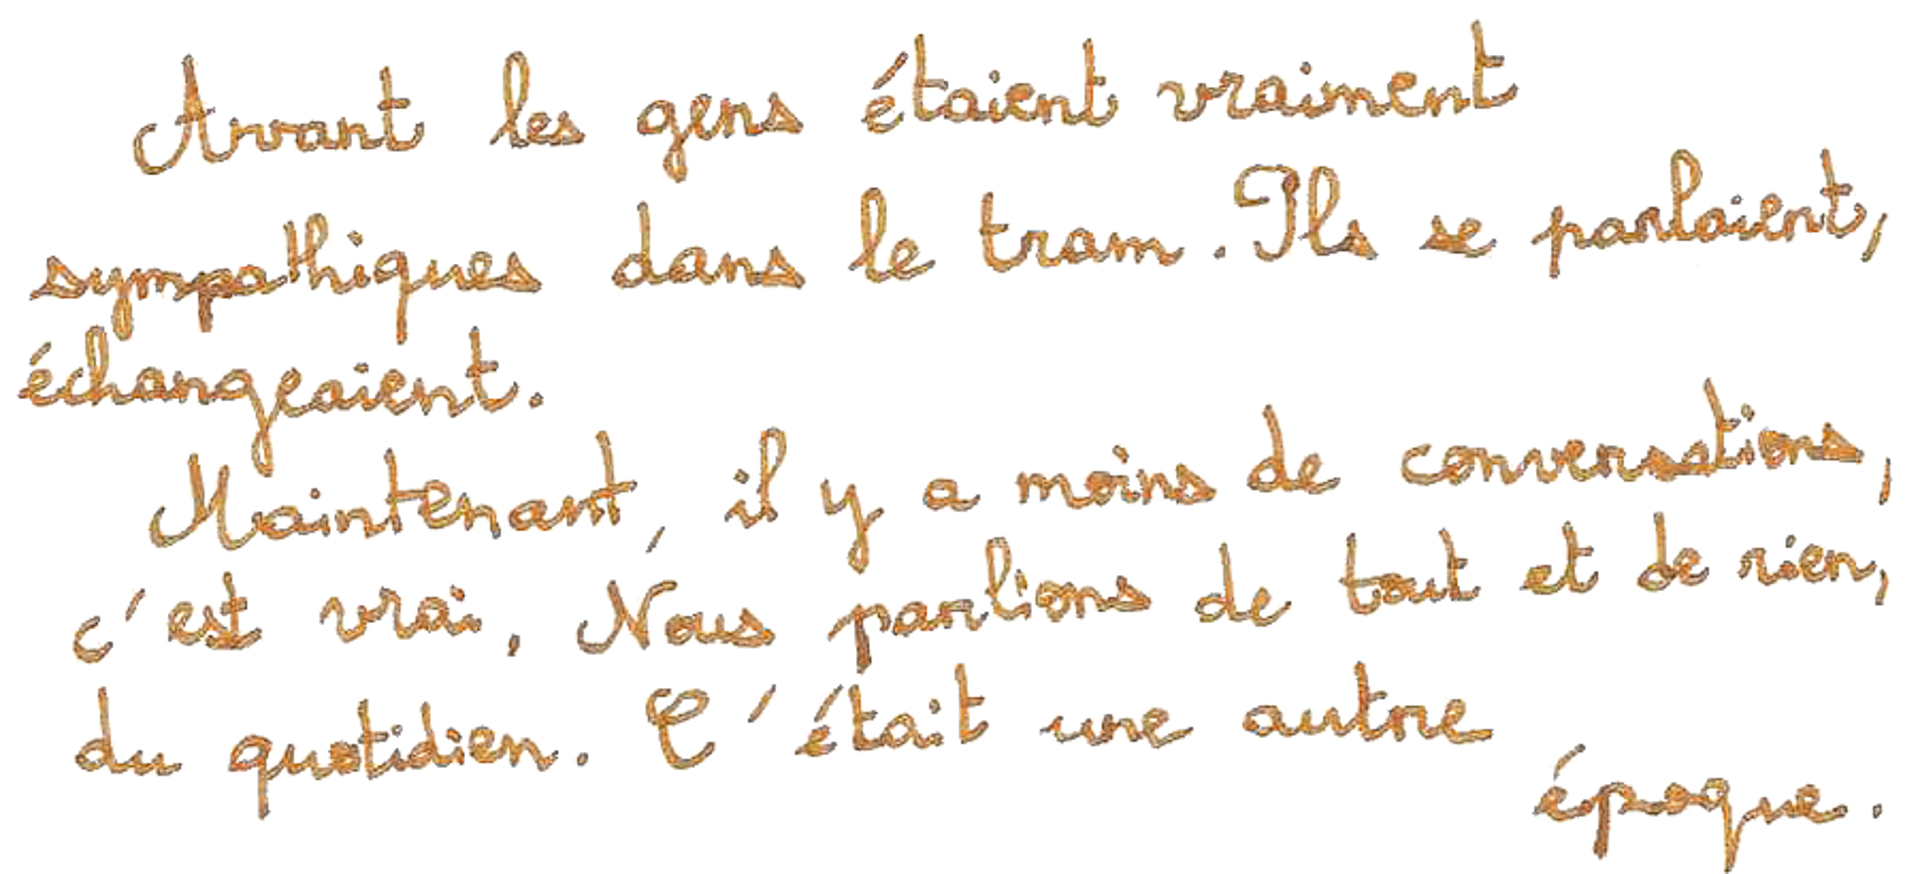 Avant les gens étaient vraiment
sympathiques dans le tram. Ils se parlaient,
échangeaient.
Maintenant, il y a moins de conversations,
c'est vrai. Nous parlions de tout et de rien,
du quotidien. C'était une autre
époque.